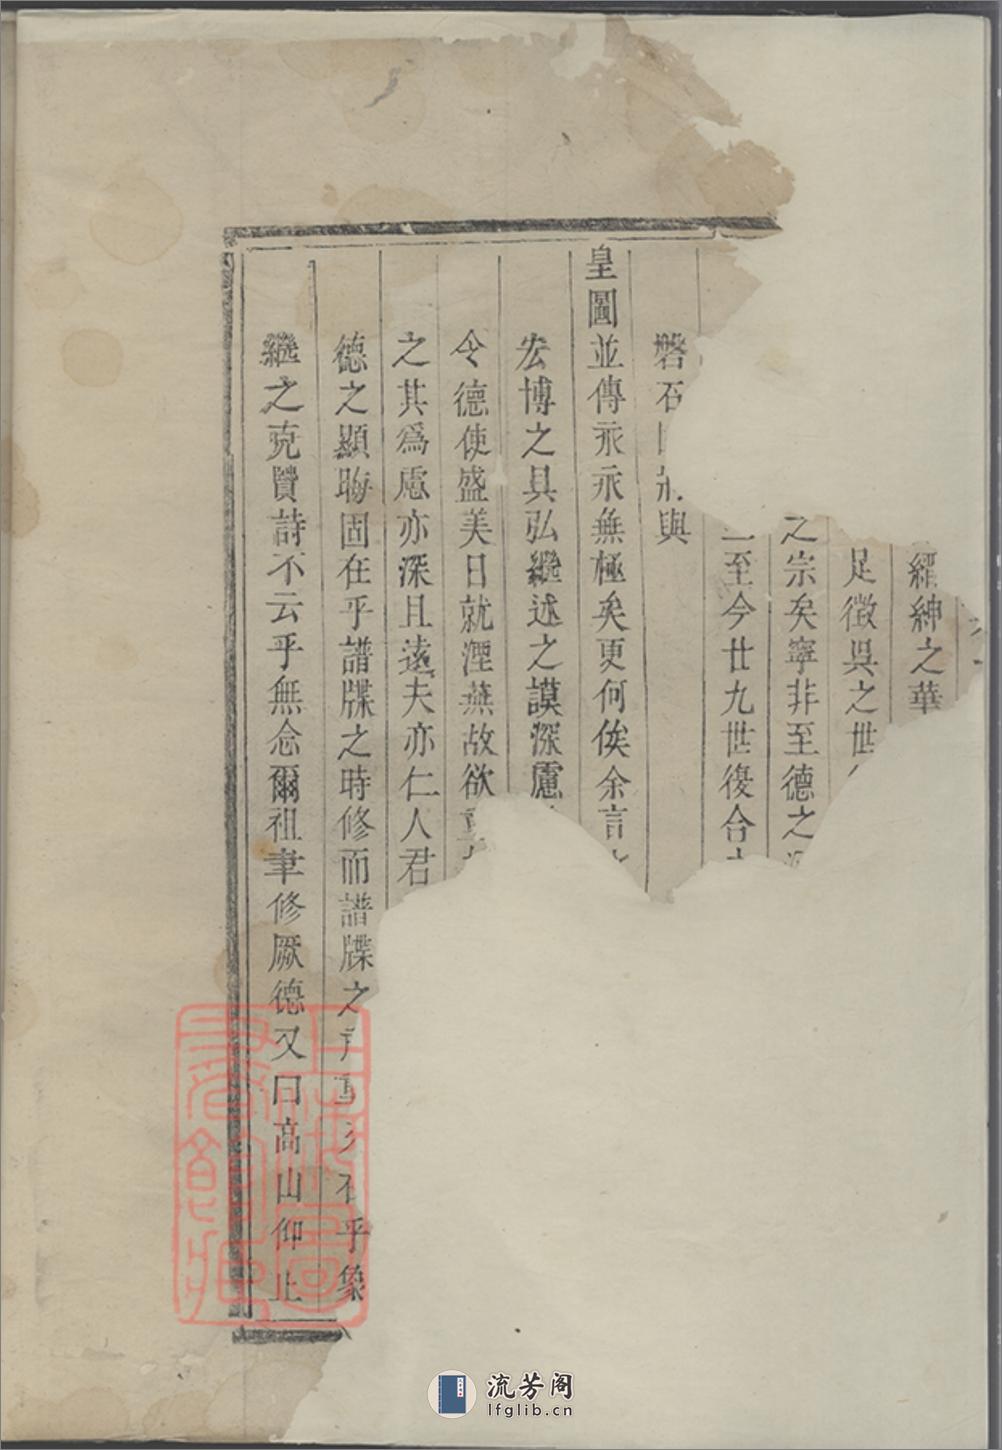 縉紳之華
足徵吳之世
之宗矣寧非至德之
至今廿九世後合
磐石
與
皇圖並傳永永無極矣更何俟余言
宏博之具弘繼述之謨深慮
令德使盛美日就湮蕪故欲
之其爲慮亦深且遠夫亦仁人君
德之顯晦固在乎譜牒之時修而譜牒之
乎象
繼之克賢詩不云乎無念爾祖聿修厥德又曰高山仰止
上海圖書館藏
流芳阁
lfglib.cn